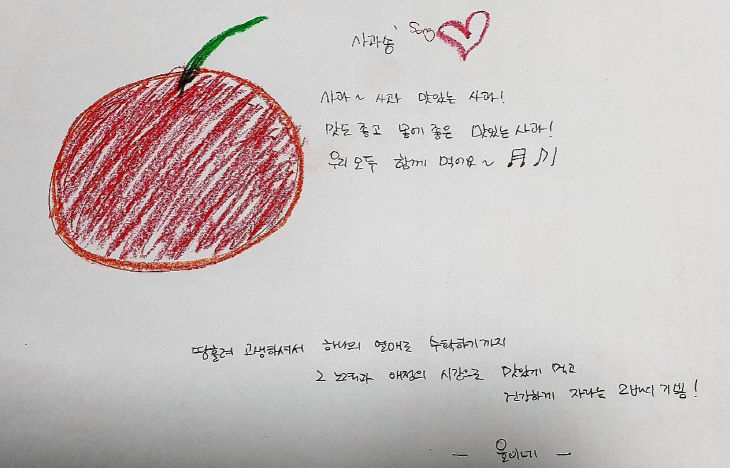 사과송 Song
사과~ 사과 맛있는 사과!
맛도 좋고 몸에 좋은 맛있는 사과!
우리 모두 함께 먹어요~
땀흘려 고생하셔서 하나의 열매로 수확하기까지
그 노력과 애정의 시간으로 맛있게 먹고
건강하게 자라는